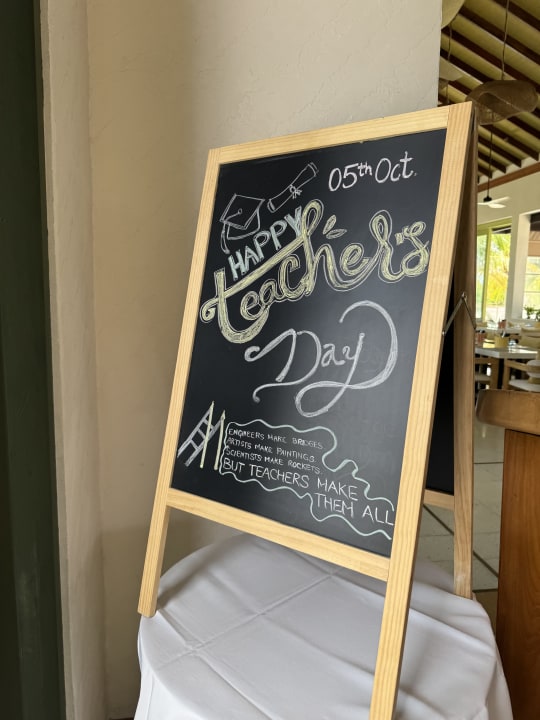 05th Oct.
HAPPY
teacher's
Day
ENGINEERS MAKE BRIDGES.
ARTISTS MAKE PAINTINGS.
SCIENTISTS MAKE ROCKETS.
BUT TEACHERS MAKE
THEM ALL